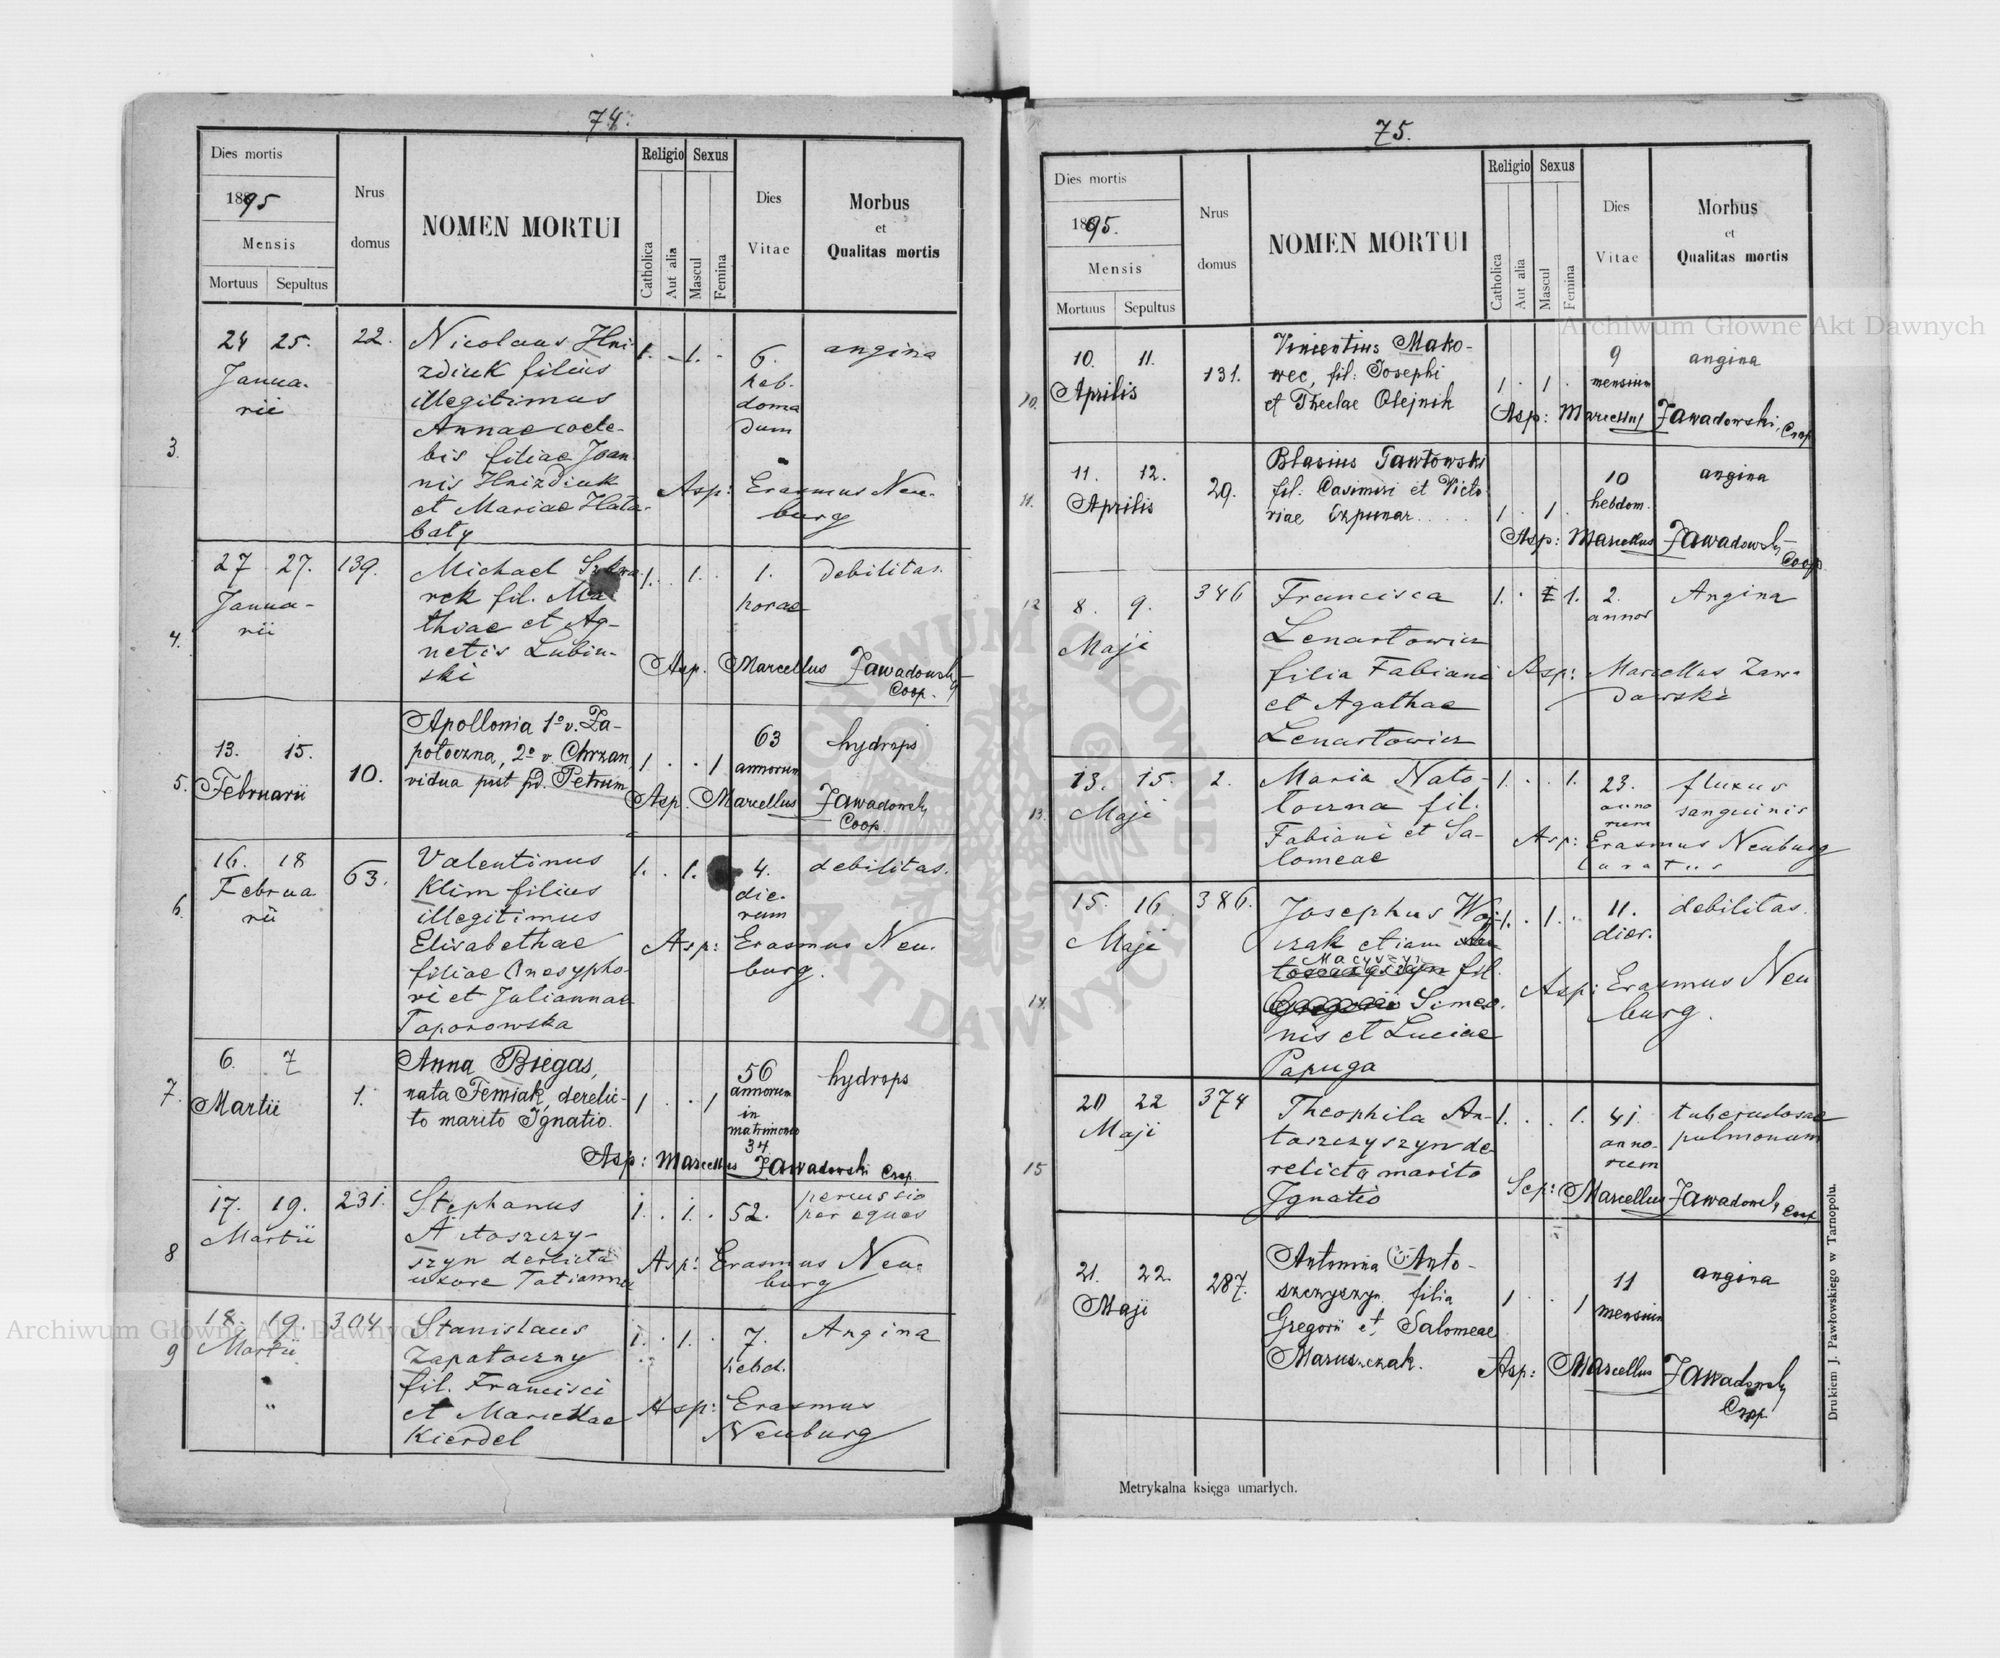 74.
Dies mortis
1895
Mensis
Mortuus Sepultus
Nrus
domus
NOMEN MORTUI
Religio Sexus
Catholica
Aut alia
Mascul
Femina
Dies
Vitae
Morbus
et
Qualitas mortis
3.
24 25.
Janua-
rii
22.
Nicolaus Hni-
zdiuk filius
illegitimus
Annae coele-
bis filiae Joan
nis Hnizdiuk
et Mariae Hała-
baty
1. 1.
6.
heb-
doma
dum
angina
Asp: Erasmus Neu-
burg
4.
27 27.
Janua-
rii
139.
Michael
rek fil. Ma
thiae et Ag-
netis Lubin-
ski
1. 1.
1.
horae
debilitas.
Asp. Marcellus Zawadowski
Coop.
5.
13. 15.
Februarii
10.
Apollonia 1º v. Za-
potoczna, 2º v. Chrzan,
vidua post fd. Petrum
1 1
63
annorum
hydrops
Asp. Marcellus Zawadowski
Coop.
6.
16. 18
Februa
rii
63.
Valentinus
Klim filius
illegitimus
Elisabethae
filiae Onesypho-
ri et Juliannae
Toporowska
1. 1.
4.
die-
rum
debilitas.
Asp: Erasmus Neu-
burg.
7.
6. 7
Martii
1.
Anna Biegas,
nata Femiak, derelic-
to marito Ignatio.
1 1
56
annorum
in
matrimonio
34
hydrops
Asp: Marcellus Zawadowski Coop
8
17. 19.
Martii
231.
Stephanus
Antoszczy-
szyn derlicta
uxore Tatianna
1. 1.
52.
percussio
per equos
Asp: Erasmus Neu-
burg
9
18. 19.
Martii
"
304
Stanislaus
Zapotoczny
fil. Francisci
et Mariellae
Kierdel
1. 1.
7.
hebd.
Angina
Asp: Erasmus
Neuburg
75.
Dies mortis
1895.
Mensis
Mortuus Sepultus
Nrus
domus
NOMEN MORTUI
Religio Sexus
Catholica
Aut alia
Mascul
Femina
Dies
Vitae
Morbus
et
Qualitas mortis
10.
10. 11.
Aprilis
131.
Vincentius Mako-
wec, fil: Josephi
et Theclae Olejnik
1 1
9
mensium
angina
Asp: Marcellus Zawadowski, Coop
11.
11. 12.
Aprilis
29.
Blasius Gawłowski
fil. Casimiri et Victo-
riae Czpunar
1 1
10
hebdom.
angina
Asp: Marcellus Zawadowski
Coop
12
8. 9.
Maji
346
Francisca
Lenartowicz
filia Fabiani
et Agathae
Lenartowicz
1. 1.
2.
annos
Angina
Asp: Marcellus Zaw-
dowski
13.
13. 15.
Maji
2.
Maria Nato-
toczna fil.
Fabiani et Sa-
lomeae
1. 1.
23.
anno
rum
fluxus
sanguinis
Asp: Erasmus Neuburg
curatus
14.
15. 16
Maji
386.
Josephus Woj-
czak etiam
fil.
Simeo-
nis et Luciae
Papuga
1. 1.
11.
dier.
debilitas.
Asp: Erasmus Neu
burg.
15
20 22
Maji
374
Theophila An-
toszczyszyn de-
relicto marito
Ignatio
1. 1.
41.
anno-
rum
tuberculosae
pulmonum
Sep: Marcellus Zawadowski Coop
21. 22.
Maji
287.
Antonina Anto-
szczyszyn filia
Gregorii et Salomeae
Maruszczak.
1 1
11
mensium
angina
Asp: Marcellus Zawadowski
Coop
Metrykalna księga umarłych.
Drukiem J. Pawłowskiego w Tarnopolu.
Archiwum Główne Akt Dawnych
Archiwum Główne Akt Dawnych
ARCHIWUM GŁÓWNE AKT DAWNYCH